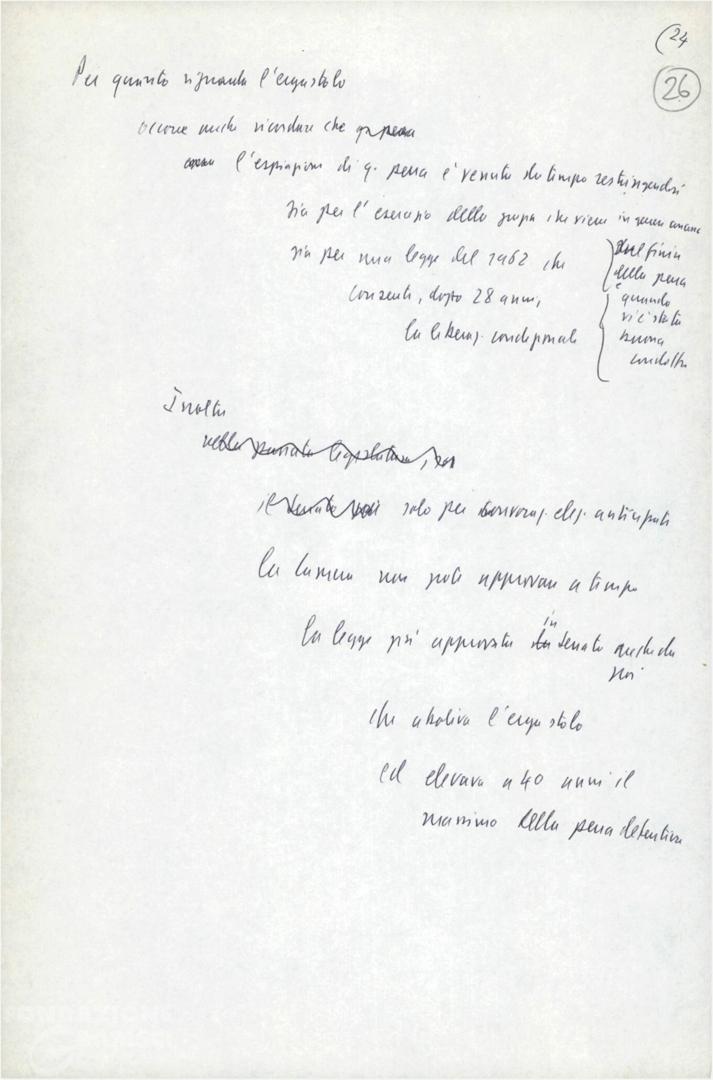 (24
26
Per quanto riguarda l'ergastolo
occorre anche ricordare che q. pena
l'espiazione di q. pena è venuta da tempo restringendosi
sia per l'esercizio della grazia che viene in genere
sia per una legge del 1962 che
consente, dopo 28 anni,
la liberaz. condizionale
della pena
e quando
vi è stata
buona
condotta
Inoltre
nella passata legislatura,
il Senato solo per convocaz. elez. anticipate
la Camera non poté approvare a tempo
la legge già approvata in Senato anche da
noi
che aboliva l'ergastolo
ed elevava a 40 anni il
massimo della pena detentiva